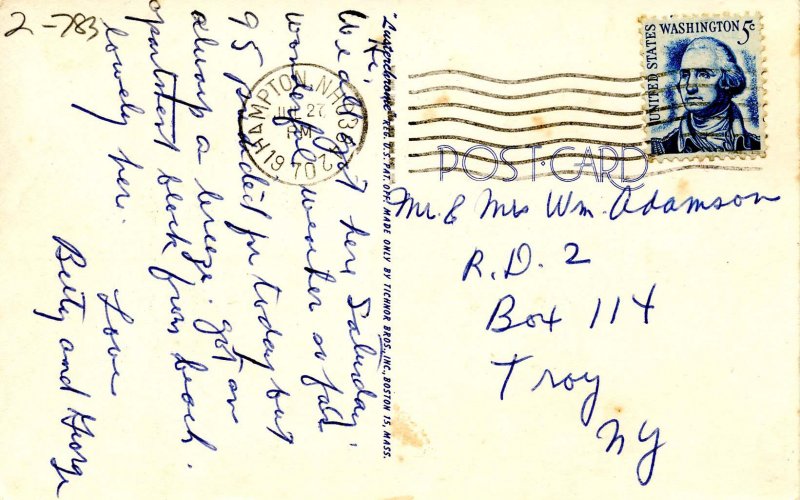 2-783
Hi,
We all got here Saturday.
wonderful weather so far
95 predicted for today but
always a breeze. got an
apartment block from beach.
lovely here.
Love
Betty and George
"Lusterchrome" REG. U.S. PAT. OFF. MADE ONLY BY TICHNOR BROS., INC., BOSTON 15, MASS.
HAMPTON, NH 038
27
PM
1970
UNITED STATES
WASHINGTON 5c
POST CARD
Mr. & Mrs Wm. Adamson
R.D. 2
Box 114
Troy
NY